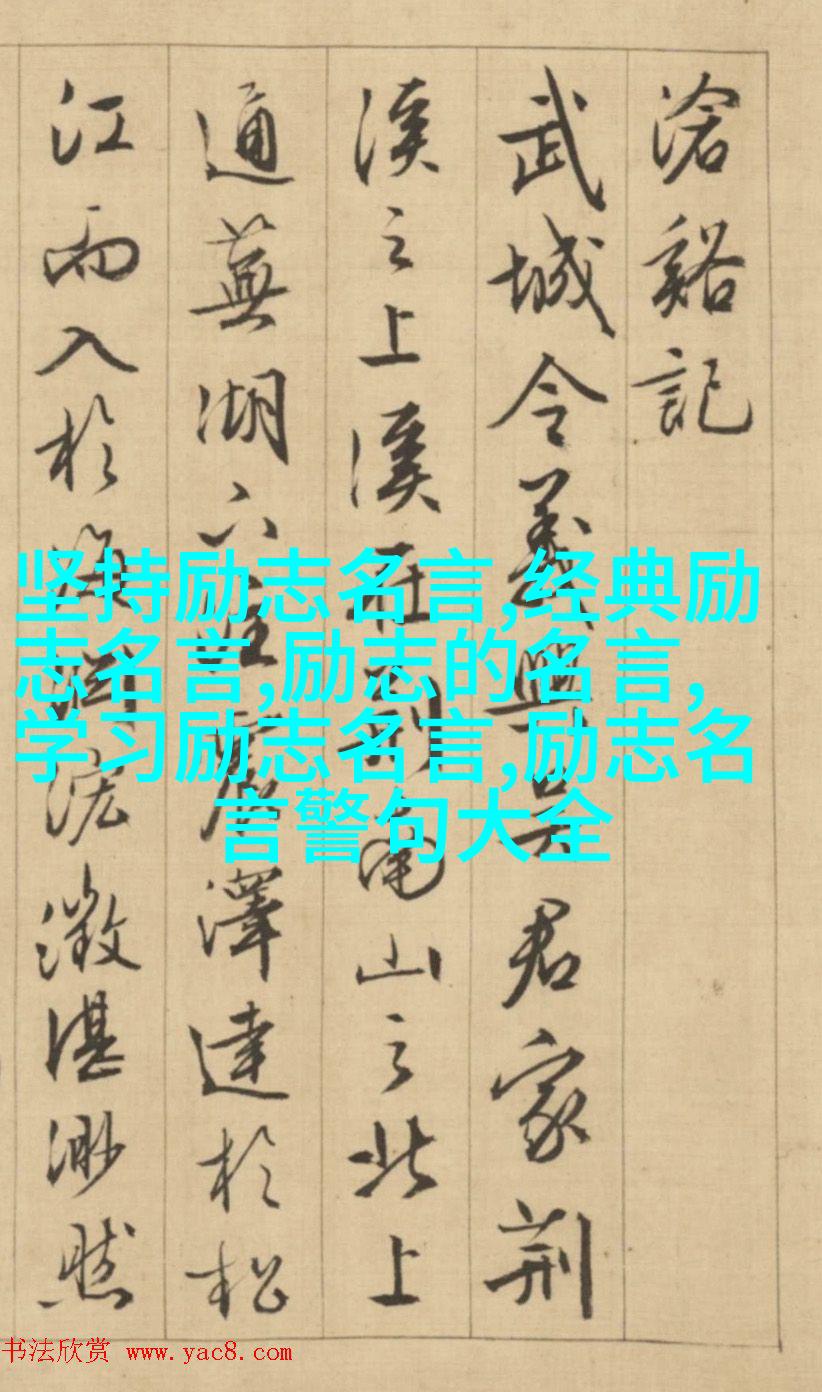 滄谿記
武城令義興吳君家荆
溪之上溪在荆南山之北上
通蕪湖下
澤達於松
江而入於海
澂湛渺然
坚持励志名言,经典励
志名言,励志的名言,
学习励志名言,励志名
言警句大全
书法欣赏 www.yac8.com